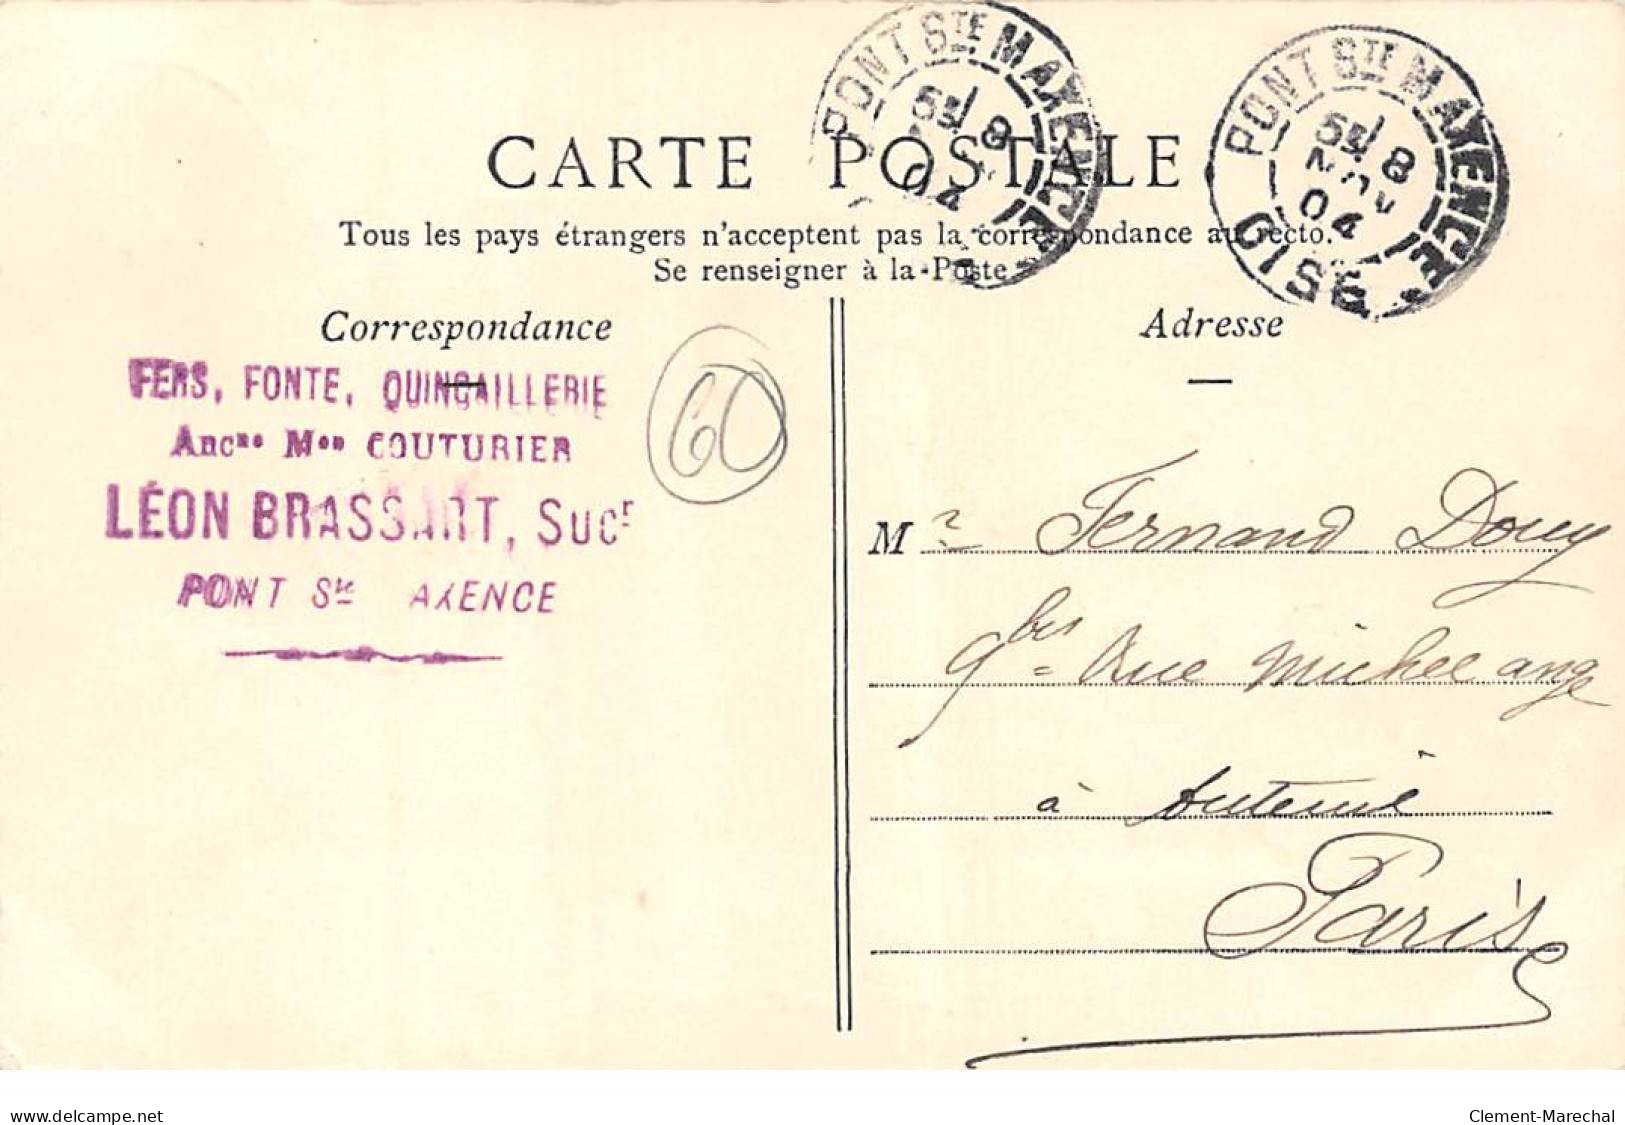 PONT STE MAXENCE
8
04
PONT STE MAXENCE
8
NOV
04
OISE
CARTE POSTALE
Tous les pays étrangers n'acceptent pas la correspondance au recto.
Se renseigner à la Poste
Correspondance
Adresse
FERS, FONTE, QUINCAILLERIE
Ancne Mon COUTURIER
LÉON BRASSART, Sucr
PONT Ste MAXENCE
60
Mr Fernand Douy
9 bis = Rue Michel ange
à Auteuil
Paris
www.delcampe.net
Clement-Marechal